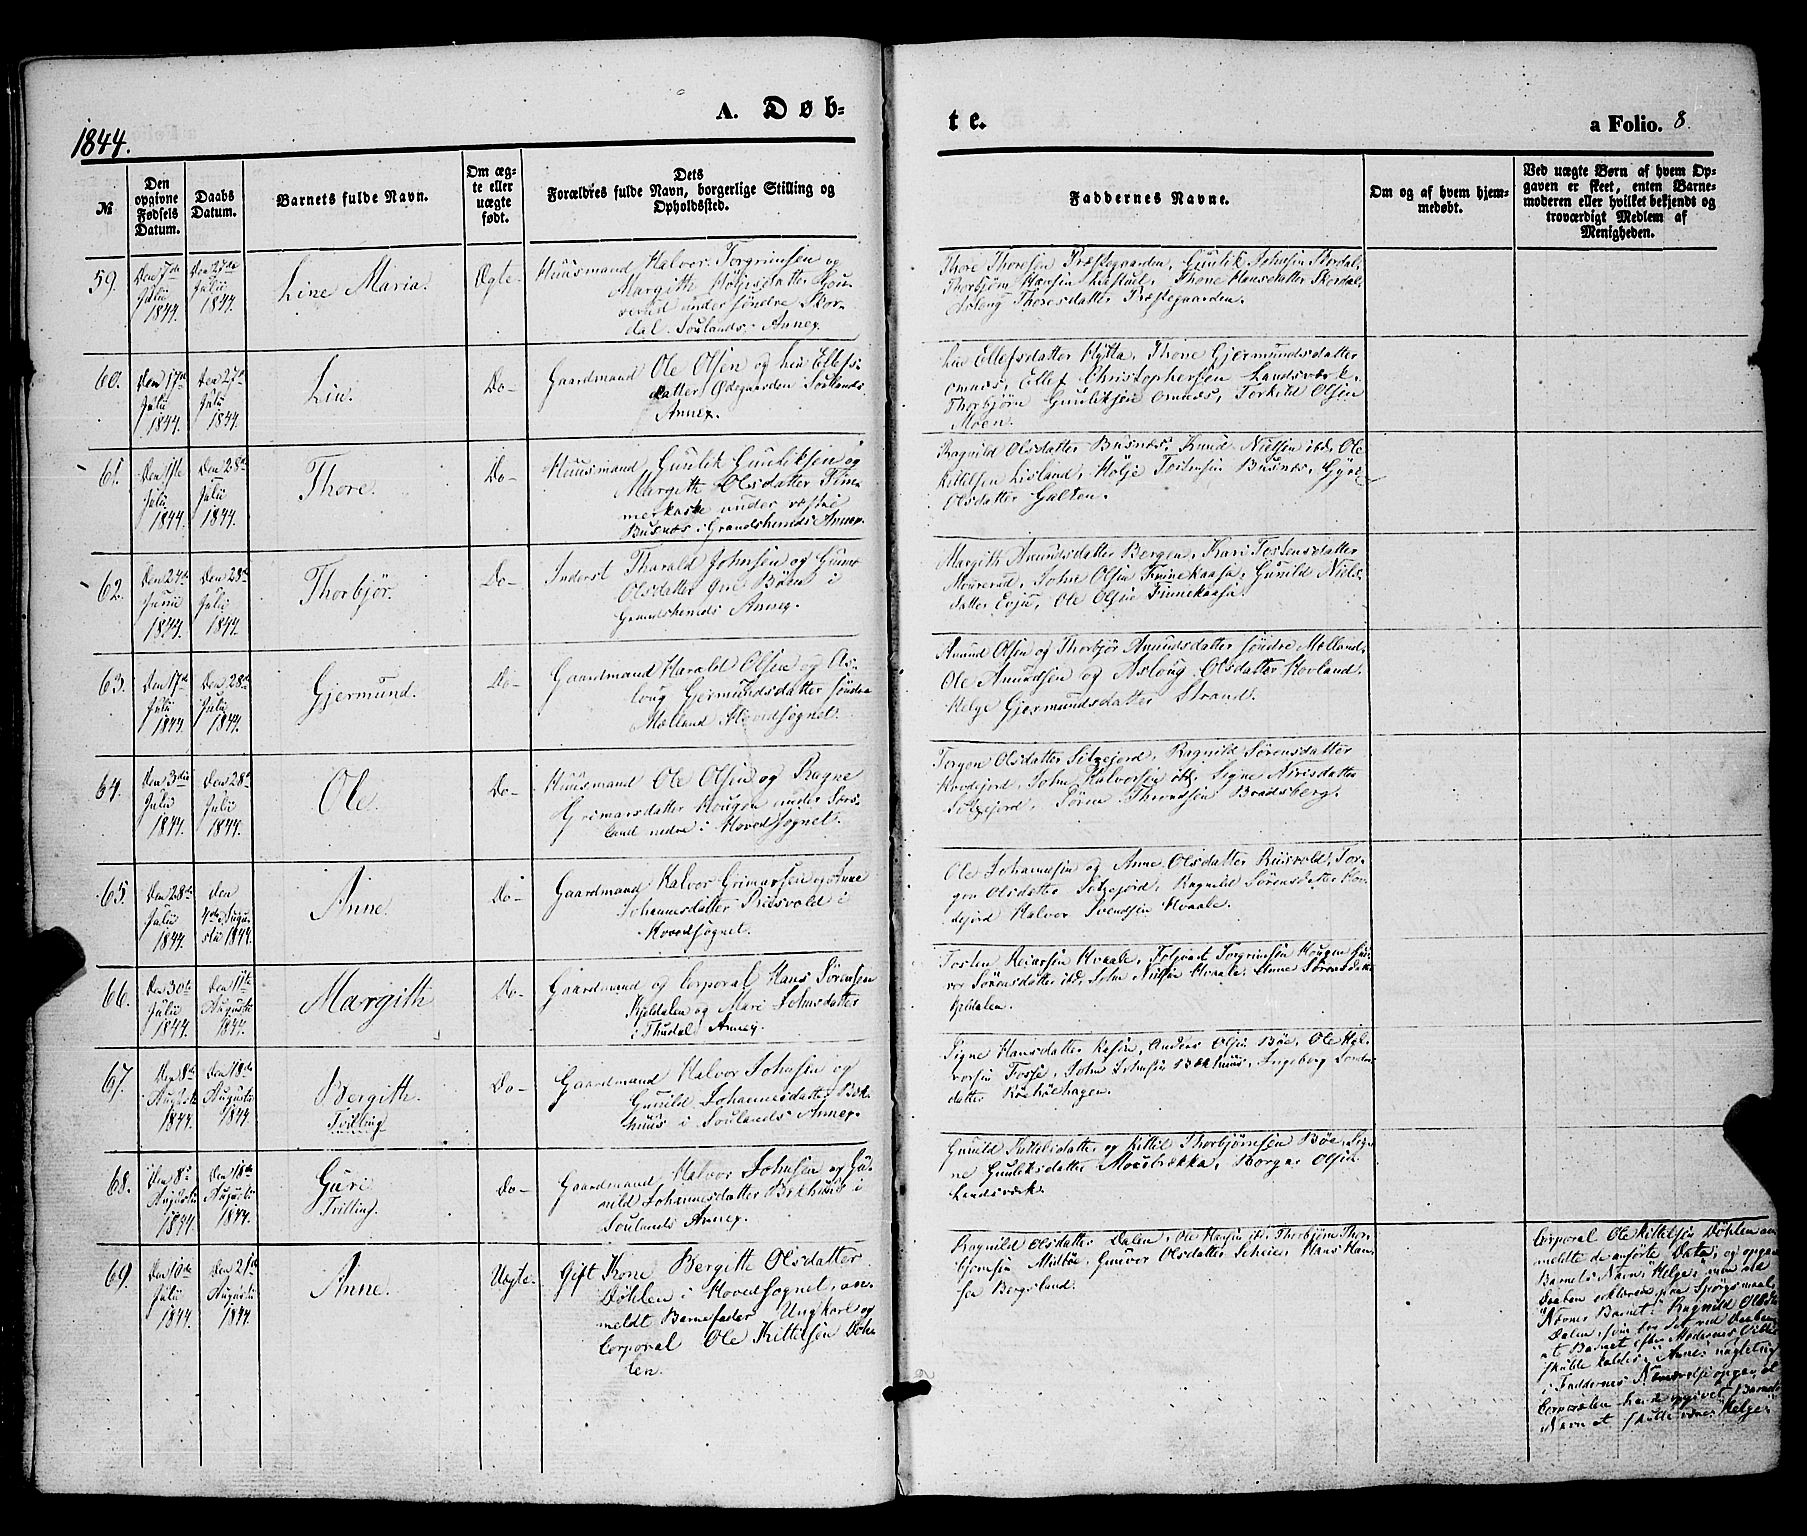 1844.
A. Døb-
te.
a Folio. 8.
№
Den opgivne Fødsels Datum.
Daabs Datum.
Barnets fulde Navn.
Om ægte eller uægte født.
Dets Forældres fulde Navn, borgerlige Stilling og Opholdssted.
Faddernes Navne.
Om og af hvem hjemmedøbt.
Ved uægte Børn af hvem Opgaven er skeet, enten Barnemoderen eller hvilket bekjendt og troværdigt Medlem af Menigheden.
59.
Den 7de
Julii
1844.
Den 27de
Julii
1844.
Line Maria.
Ægte
Huusmand Halvor Torgrimsen og
Margith Høljesdatter
under søndre Skor-
dal. Soulands Annex.
Thore Thoresen Præstegaarden, Gunlik Johnsen Skordal,
Thorbjørn Hansen Liestuel, Thone Hansdatter Skordal,
Aslaug Thoresdatter Præstegaarden.
60.
Den 17de
Julii
1844.
Den 27de
Julii
1844.
Liv.
Do-
Gaardmand Ole Olsen og Liv Ellefs-
datter Ødegaarden Soulands
Annex.
Liv Ellefsdatter Hytta, Thone Gjermundsdatter
Omnæs, Ellef Christophersen Landsværk,
Thorbjørn Gunliksen Omnæs, Torkild Olsen
Moen.
61.
Den 1ste
Julii
1844.
Den 28de
Julii
1844.
Thore.
Do-
Huusmand Gunlik Gunliksen og
Margith Olsdatter Tim-
merkaste under vestre
Busnæs i Grandsherreds Annex.
Ragnild Olsdatter Busnæs, Knud Nielsen ibd, Ole
Kittelsen Lisland, Hølje Tostensen Busnæs, Gyro
Olsdatter Gulten.
62.
Den 24de
Junii
1844.
Den 28de
Julii
1844.
Thorbjør.
Do-
Inderst Tharald Johnsen og Gunild
Olsdatter Bøen i
Grandsherreds Annex.
Margith Amundsdatter Bergen, Kari Tostensdatter
Mourerud, John Olsen Finnekaasa, Gunild Niels-
datter Evju, Ole Olsen Finnekaasa.
63.
Den 17de
Julii
1844.
Den 28de
Julii
1844.
Gjermund.
Do-
Gaardmand Harald Olsen og As-
loug Gjermundsdatter søndre
Mølland Hovedsognet.
Amund Olsen og Thorbjør Amundsdatter søndre Mølland,
Ole Amundsen og Asloug Olsdatter Hovland,
Helge Gjermundsdatter Strand.
64.
Den 3die
Julii
1844.
Den 28de
Julii
1844.
Ole.
Do-
Huusmand Ole Olsen og Ragne
Grimarsdatter Hougen under Sees-
land nedre i Hovedsognet.
Torgon Olsdatter Sitzejord, Ragnild Sørensdatter
Hovdejord, John Halvorsen ibd, Signe Nirisdatter
Sitzejord, Søren Thronsen Bradsberg.
65.
Den 28de
Julii
1844.
Den
4de Augu-
stii 1844.
Anne.
Do-
Gaardmand Halvor Grimarsen og Anne
Johannesdatter Riisvold i
Hovedsognet.
Ole Johannesen og Anne Olsdatter Riisvold, Tor-
gon Olsdatter Sitzejord, Ragnild Sørensdatter Hov-
dejord, Halvor Svendsen Hvaale.
66.
Den 30te
Julii
1844.
Den 11te
Augustii
1844.
Margith
Do-
Gaardmand og Corporal Hans Sørensen
Kjeldalen og Mari Johnsdatter
i Thudal Annex.
Tosten Reiarsen Hvaale, Foljord Torgrimsen Hougen, Gun-
vor Sørensdatter ibd, John Nielsen Hvaale, Anne Sørensdatter
Kjeldalen.
67.
Den 8de
Augustii
1844.
Den 18de
Augustii
1844.
Bergith.
Tvilling.
Do-
Gaardmand Halvor Johnsen og
Gunild Johannesdatter Bæk-
huus i Soulands Annex.
Signe Hansdatter Rosen, Anders Olsen Bøe, Ole Hal-
vorsen Fosse, John Johnsen Bækhuus, Ingeborg Sonder-
datter
68.
Den 8de
Augustii
1844.
Den 18de
Augustii
1844.
Guri
Tvilling.
Do-
Gaardmand Halvor Johnsen og Gu-
nild Johannesdatter Bækhuus i
Soulands Annex.
Gunild Kittelsdatter og Kittil Thorbjørnsen Bøe, Sig-
ne Gunleksdatter Mosebrækka, Borgar Olsen
Landsværk.
69.
Den 10de
Julii
1844.
Den 21de
Augustii
1844.
Anne.
Uægte.
Gift Kone Bergith Olsdatter
Døhlen i Hovedsognet, an-
meldt Barnefader Ungkarl og
Corporal Ole Kittilsen Døh-
len.
Ragnild Olsdatter Dalen, Ole Hansen ibd, Thorbjørn Thor-
bjørnsen Midbøe, Gunvor Olsdatter Scheie, Hans Han-
sen Bergsland.
Corporal Ole Kittelsen Døhlen an-
meldte de anførte Data, og opgav
Barnets Navn "Helge", men ved
Daaben erklærede paa Spørgsmaal
Navnet Barnet Ragnild Olsd.
Dalen, som bar det ved Daaben
at Barnet efter Moderens Villie
skulde kaldes "Anne"
i Faddernes Nærværelse opgav at
Corporalen havde opgivet Barnets
Navn at skulle være "Helge".